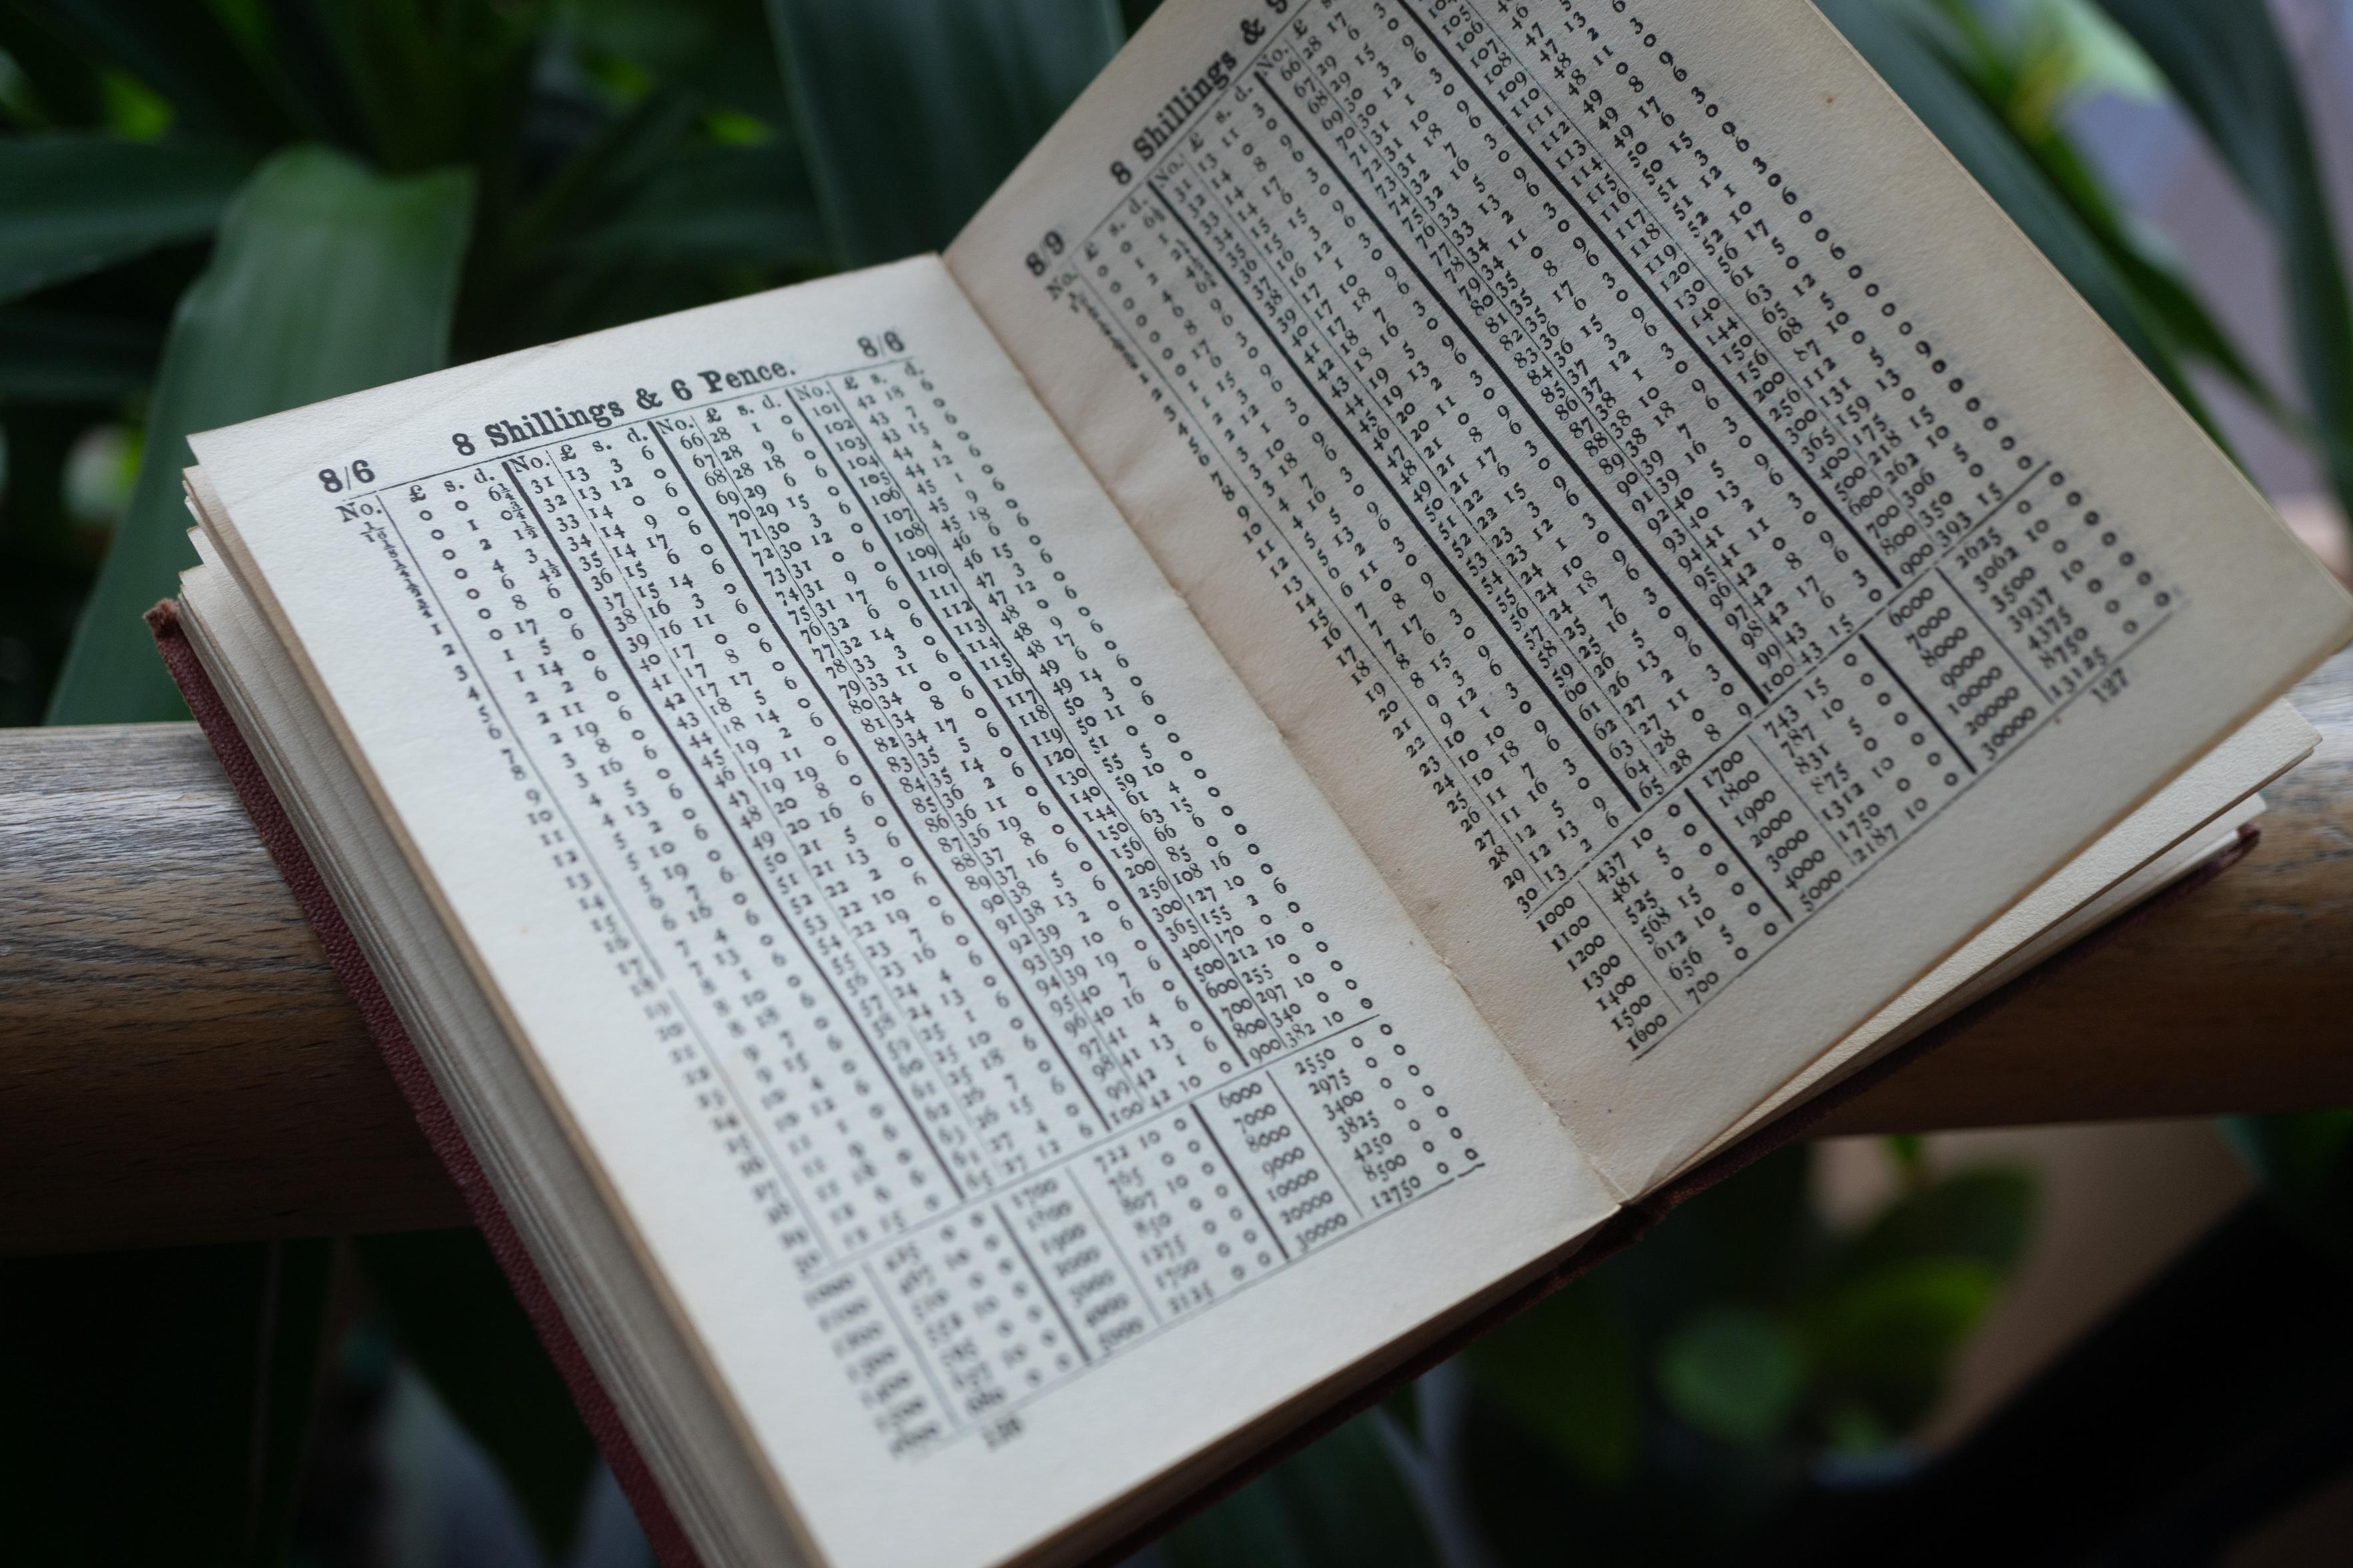 8/6 8 Shillings & 6 Pence. 8/6
No. £ s. d.
0 0 6¼
0 1 0¾
0 2 1½
0 4 3
0 6 4½
1 0 8 6
2 0 17 0
3 1 5 6
4 1 14 0
5 2 2 6
6 2 11 0
7 2 19 6
8 3 8 0
9 3 16 6
10 4 5 0
11 4 13 6
12 5 2 0
13 5 10 6
14 5 19 0
15 6 7 6
16 6 16 0
17 7 4 6
18 7 13 0
19 8 1 6
20 8 10 0
21 8 18 6
22 9 7 0
23 9 15 6
24 10 4 0
25 10 12 6
26 11 1 0
27 11 9 6
28 11 18 0
29 12 6 6
30 12 15 0
No. £ s. d.
31 13 3 6
32 13 12 0
33 14 0 6
34 14 9 0
35 14 17 6
36 15 6 0
37 15 14 6
38 16 3 0
39 16 11 6
40 17 0 0
41 17 8 6
42 17 17 0
43 18 5 6
44 18 14 0
45 19 2 6
46 19 11 0
47 19 19 6
48 20 8 0
49 20 16 6
50 21 5 0
51 21 13 6
52 22 2 0
53 22 10 6
54 22 19 0
55 23 7 6
56 23 16 0
57 24 4 6
58 24 13 0
59 25 1 6
60 25 10 0
61 25 18 6
62 26 7 0
63 26 15 6
64 27 4 0
65 27 12 6
No. £ s. d.
66 28 1 0
67 28 9 6
68 28 18 0
69 29 6 6
70 29 15 0
71 30 3 6
72 30 12 0
73 31 0 6
74 31 9 0
75 31 17 6
76 32 6 0
77 32 14 6
78 33 3 0
79 33 11 6
80 34 0 0
81 34 8 6
82 34 17 0
83 35 5 6
84 35 14 0
85 36 2 6
86 36 11 0
87 36 19 6
88 37 8 0
89 37 16 6
90 38 5 0
91 38 13 6
92 39 2 0
93 39 10 6
94 39 19 0
95 40 7 6
96 40 16 0
97 41 4 6
98 41 13 0
99 42 1 6
100 42 10 0
No. £ s. d.
101 42 18 6
102 43 7 0
103 43 15 6
104 44 4 0
105 44 12 6
106 45 1 0
107 45 9 6
108 45 18 0
109 46 6 6
110 46 15 0
111 47 3 6
112 47 12 0
113 48 0 6
114 48 9 0
115 48 17 6
116 49 6 0
117 49 14 6
118 50 3 0
119 50 11 6
120 51 0 0
130 55 5 0
140 59 10 0
144 61 4 0
150 63 15 0
156 66 6 0
200 85 0 0
256 108 16 0
300 127 10 0
365 155 2 6
400 170 0 0
500 212 10 0
600 255 0 0
700 297 10 0
800 340 0 0
900 382 10 0
1700 722 10 0
1800 765 0 0
1900 807 10 0
2000 850 0 0
3000 1275 0 0
4000 1700 0 0
5000 2125 0 0
6000 2550 0 0
7000 2975 0 0
8000 3400 0 0
9000 3825 0 0
10000 4250 0 0
20000 8500 0 0
30000 12750 0 0
126
8/9 8 Shillings & 9
No. £ s. d.
0 0 6½
0 1 1
0 2 2¼
0 4 4½
0 6 6¾
1 0 8 9
2 0 17 6
3 1 6 3
4 1 15 0
5 2 3 9
6 2 12 6
7 3 1 3
8 3 10 0
9 3 18 9
10 4 7 6
11 4 16 3
12 5 5 0
13 5 13 9
14 6 2 6
15 6 11 3
16 7 0 0
17 7 8 9
18 7 17 6
19 8 6 3
20 8 15 0
21 9 3 9
22 9 12 6
23 10 1 3
24 10 10 0
25 10 18 9
26 11 7 6
27 11 16 3
28 12 5 0
29 12 13 9
30 13 2 6
No. £ s. d.
31 13 11 3
32 14 0 0
33 14 8 9
34 14 17 6
35 15 6 3
36 15 15 0
37 16 3 9
38 16 12 6
39 17 1 3
40 17 10 0
41 17 18 9
42 18 7 6
43 18 16 3
44 19 5 0
45 19 13 9
46 20 2 6
47 20 11 3
48 21 0 0
49 21 8 9
50 21 17 6
51 22 6 3
52 22 15 0
53 23 3 9
54 23 12 6
55 24 1 3
56 24 10 0
57 24 18 9
58 25 7 6
59 25 16 3
60 26 5 0
61 26 13 9
62 27 2 6
63 27 11 3
64 28 0 0
65 28 8 9
No. £ s.
66 28 17
67 29 6 3
68 29 15 0
69 30 3 9
70 30 12 6
71 31 1 3
72 31 10 0
73 31 18 9
74 32 7 6
75 32 16 3
76 33 5 0
77 33 13 9
78 34 2 6
79 34 11 3
80 35 0 0
81 35 8 9
82 35 17 6
83 36 6 3
84 36 15 0
85 37 3 9
86 37 12 6
87 38 1 3
88 38 10 0
89 38 18 9
90 39 7 6
91 39 16 3
92 40 5 0
93 40 13 9
94 41 2 6
95 41 11 3
96 42 0 0
97 42 8 9
98 42 17 6
99 43 6 3
100 43 15 0
105
106 46
107 46
108 47 5
109 47 13
110 48 2 6
111 48 11 3
112 49 0 0
113 49 8 9
114 49 17 6
115 50 6 3
116 50 15 0
117 51 3 9
118 51 12 6
119 52 1 3
120 52 10 0
130 56 17 6
140 61 5 0
144 63 0 0
150 65 12 6
156 68 5 0
200 87 10 0
256 112 0 0
300 131 5 0
365 159 13 9
400 175 0 0
500 218 15 0
600 262 10 0
700 306 5 0
800 350 0 0
900 393 15 0
1000 437 10 0
1100 481 5 0
1200 525 0 0
1300 568 15 0
1400 612 10 0
1500 656 5 0
1600 700 0 0
1700 743 15 0
1800 787 10 0
1900 831 5 0
2000 875 0 0
3000 1312 10 0
4000 1750 0 0
5000 2187 10 0
6000 2625 0 0
7000 3062 10 0
8000 3500 0 0
9000 3937 10 0
10000 4375 0 0
20000 8750 0 0
30000 13125 0 0
127